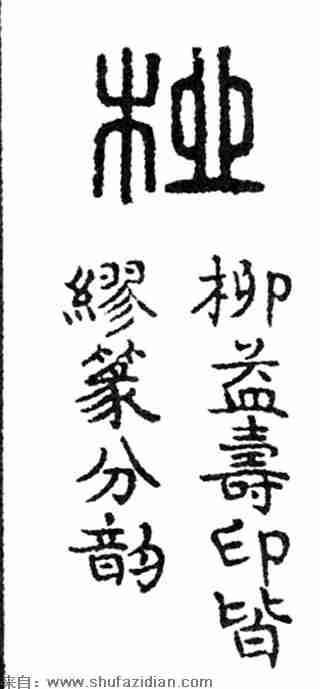 柳
柳益壽印皆
繆篆分韵
来自：www.shufazidian.com